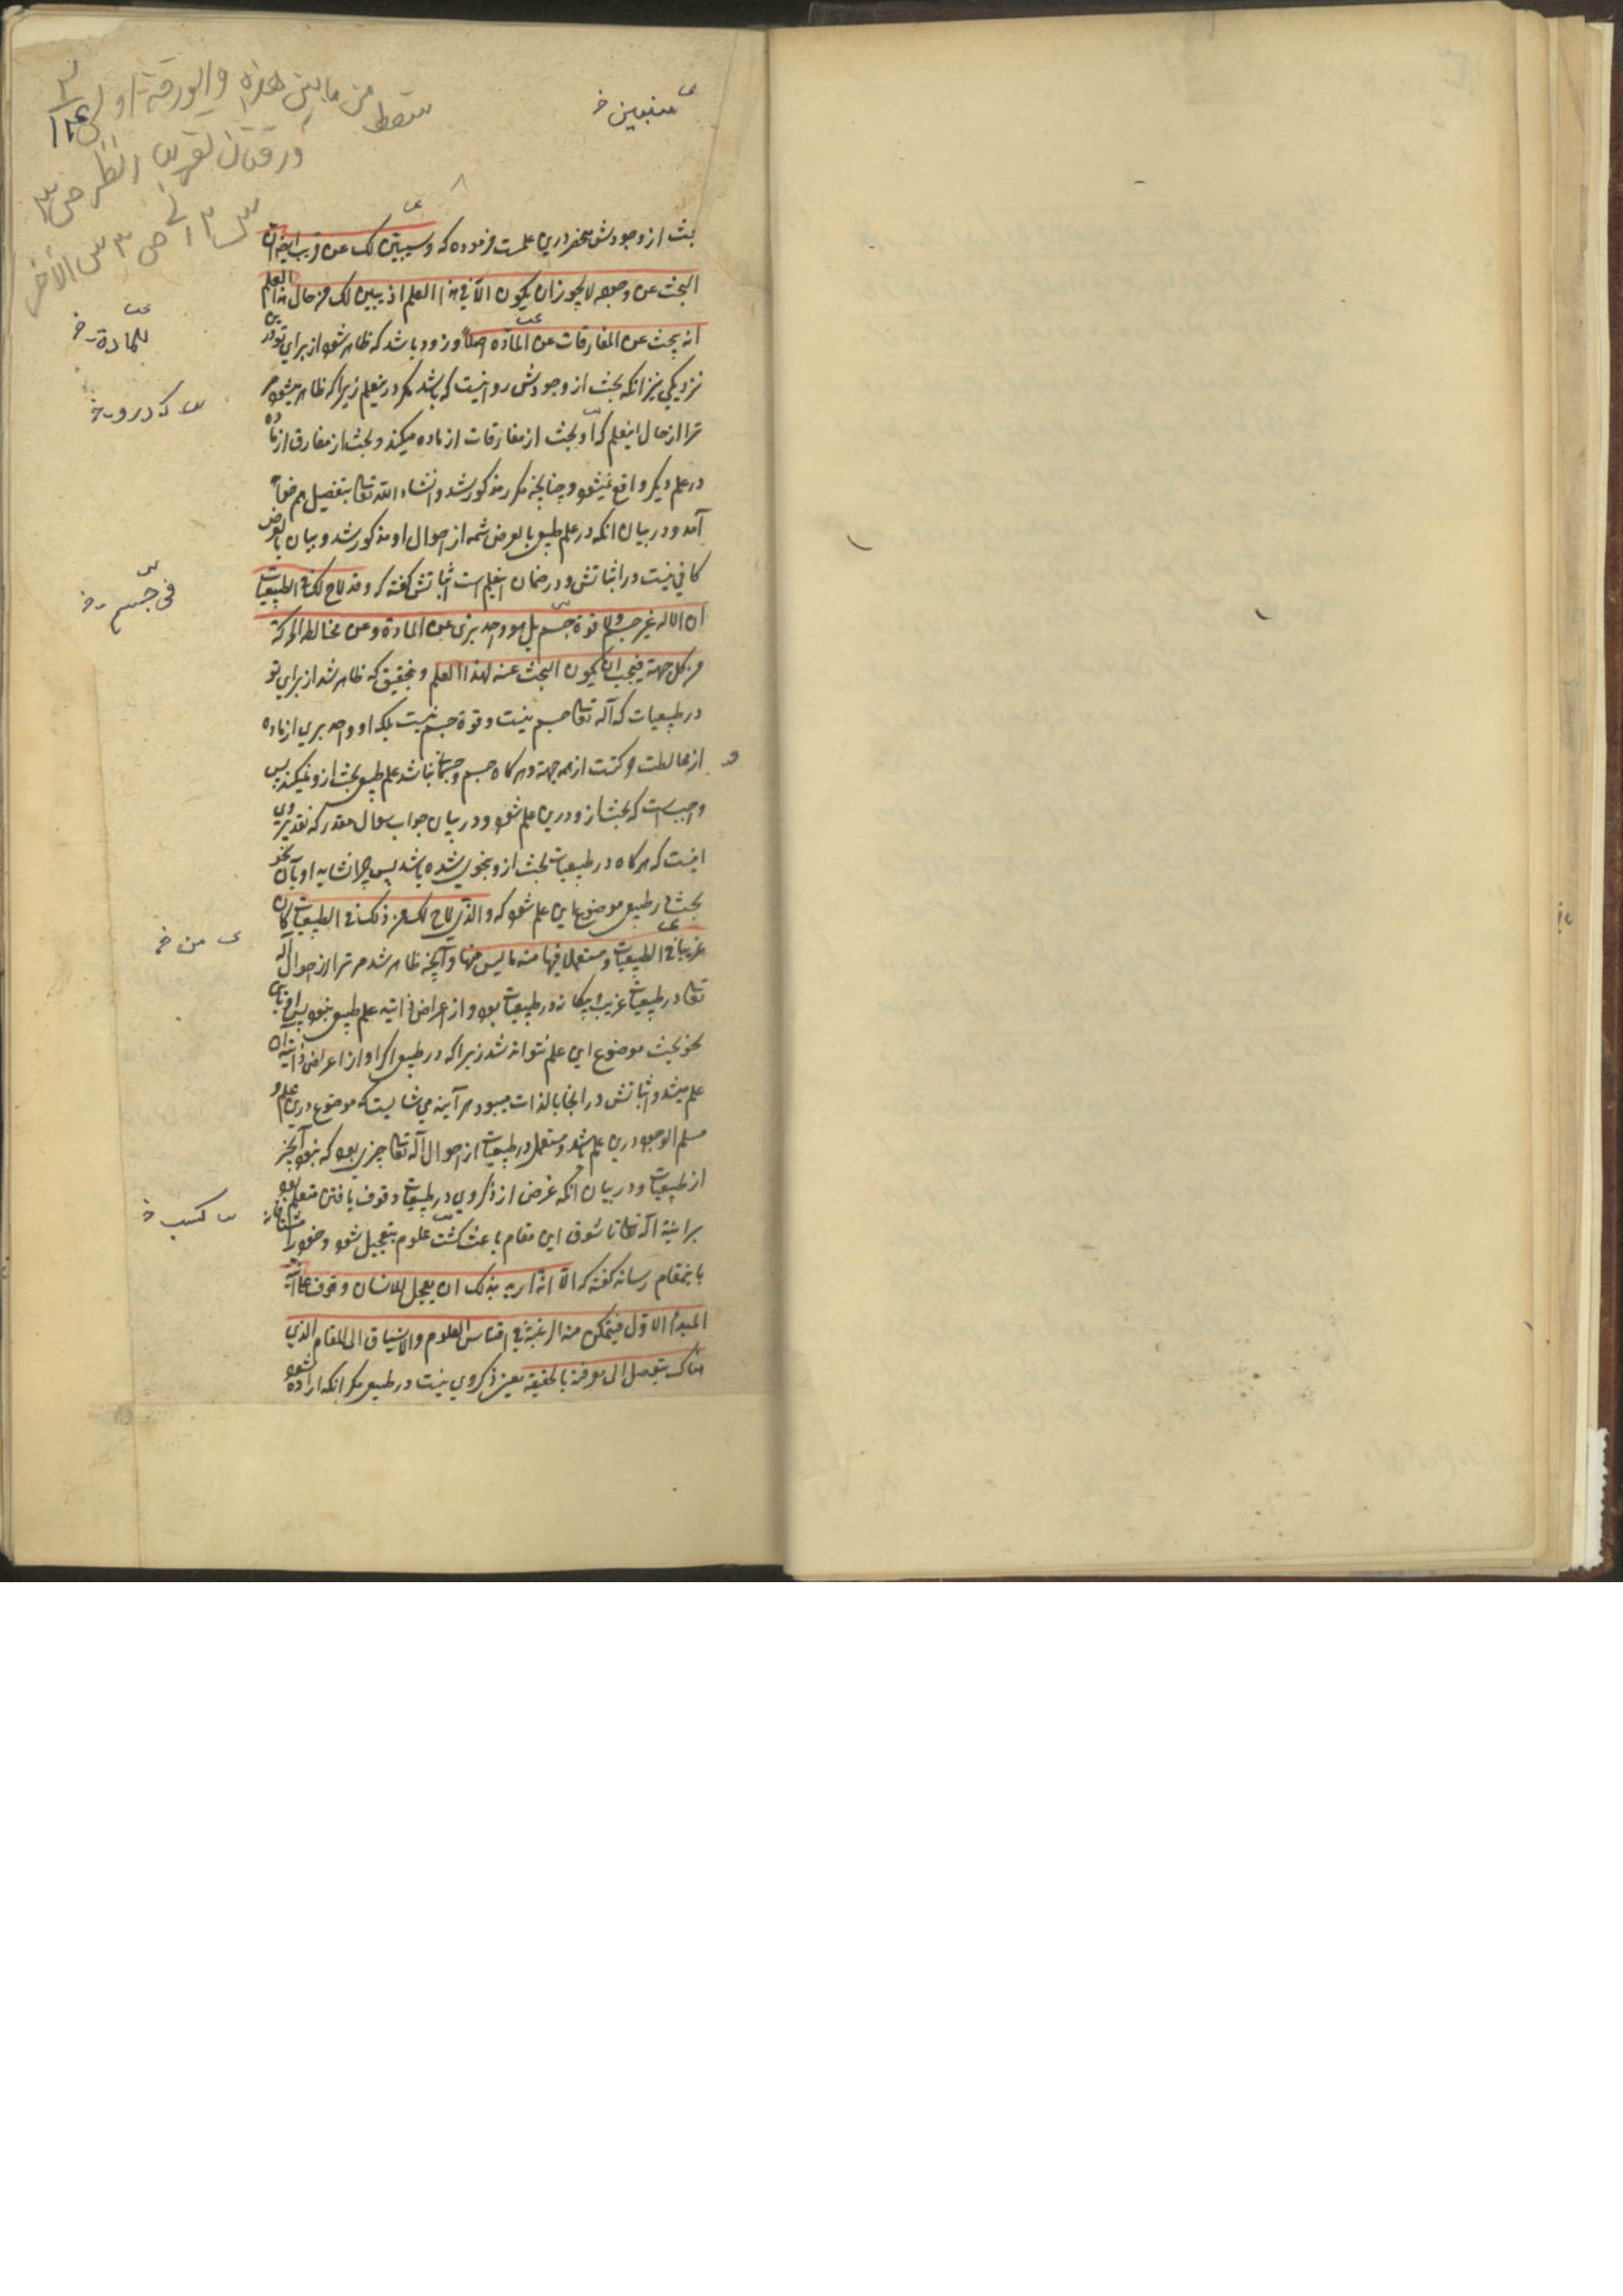 سقط من ما بين هذه والورقة
ورقتان
سنبين خ
بحث از وجودش منحصر درین علمست فرموده که وسیتبین لک عن قرب ایضا ان
البحث عن وجوده لا یجوز ان یکون الا فی هذا العلم اذ یبین لک من حال هذا العلم
انه یبحث عن المفارقات عن المادة اصلا وزود باشد که ظاهر شود از برای تو در
للمادة خ
نزدیکی نیز انکه بحث از وجودش روا نیست که باشد مکر درینعلم زیرا که ظاهر میشود مر
که درو خ
ترا از حال اینعلم که او بحث از مفارقات از ماده میکند و بحث از مفارق از ماده
در علم دیکر واقع نمیشود چنانچه مکرر مذکور شد وانشاء الله تعا بتفصیل هم خواهد
آمد ودر بیان انکه در علم طبیعی بالعرض شمه از احوال او مذکور شد و بیان بالعرض
کافی نیست در اثباتش ودر ضمان اینعلم است اثباتش کفته که وقد لاح لک فی الطبیعیات
فی جسم خ
ان الاله غیر جسم ولا قوة جسم بل هو واحد بری عن المادة وعن مخالطه الحرکة
من کل جهة فیجب ان یکون البحث عنه لهذا العلم و بتحقیق که ظاهر شد از برای تو
در طبیعیات که آله تعا جسم نیست وقوة جسم نیست بلکه او واحد بری از ماده
و از مخالطت حرکت از همه جهة وهرکاه جسم وجسمانی نباشد علم طبیعی بحث ازو نمیکند پس
واجبست که بحث ازو درین علم شود ودر بیان جواب سوال مقدر که تقدیر وی
اینست که هرکاه در طبیعیات بحث ازو بنحوی شده باشد پس چرا نشاید او بآن نحو
بحث در طبیعی موضوع این علم شود که والذی لاح لک من ذلک فی الطبیعیات کان
من خ
غریبا فی الطبیعیات ومستعملا فیها منه ما لیس منها وآنچه ظاهر شد مر ترا از احوال آله
تعا در طبیعیات غریب و بیکانه در طبیعیات بود واز اعراض ذاتیه علم طبیعی نبود پس
نحو بحث موضوع این علم نتواند شد زیرا که در طبیعی اکر او از اعراض ذاتیه ان
علم میشد واثباتش در انجا بالذات میبود هر آینه می شایست که موضوع درین علم و
مسلم الوجود درین علم باشد ومستعمل در طبیعیات از احوال آله تعا چیزی بود که نبود آنچیز
از طبیعیات ودر بیان انکه غرض از ذکر وی در طبیعیات وقوف یافتن متعلم بود
کسب خ
برانیة آله تعا تا شوق این مقام باعث کشت علوم بتعجیل شود وخود را
باینمقام رساند کفته که الا انه ارید بذلک ان یعجل للانسان وقوف علی انیة
المبدأ الاول فیتمکن منه الرغبة فی اقتباس العلوم والانسیاق الی المقام الذی
هناک یتوصل الی معرفته بالحقیقة یعنی ذکر وی نیست در طبیعی مکر انکه اراده